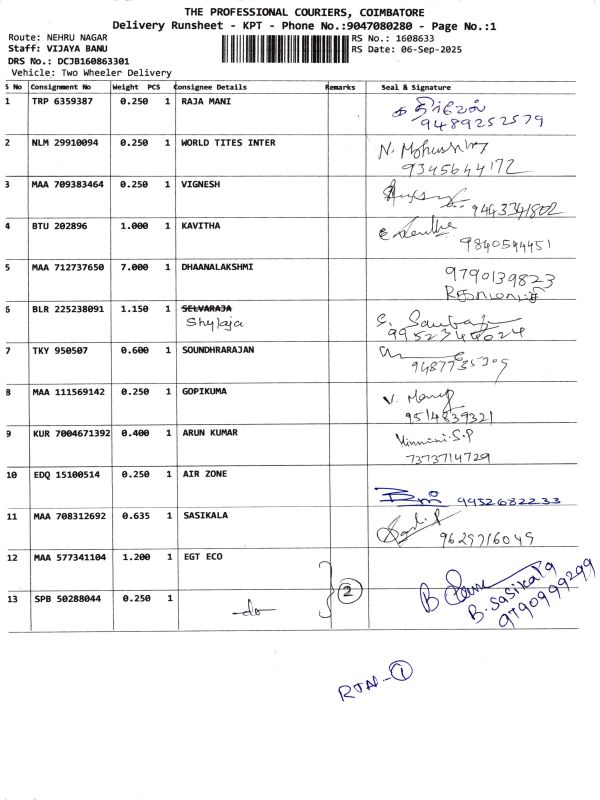 THE PROFESSIONAL COURIERS, COIMBATORE
Delivery Runsheet - KPT - Phone No.:9047080280 - Page No.:1
Route: NEHRU NAGAR
Staff: VIJAYA BANU
DRS No.: DCJB160863301
Vehicle: Two Wheeler Delivery
RS No.: 1608633
RS Date: 06-Sep-2025
S No Consignment No Weight PCS Consignee Details Remarks Seal & Signature
1 TRP 6359387 0.250 1 RAJA MANI கதிர்வேல்
9489252579
2 NLM 29910094 0.250 1 WORLD TITES INTER N.
9345644172
3 MAA 709383464 0.250 1 VIGNESH
9443341802
4 BTU 202896 1.000 1 KAVITHA
9840594451
5 MAA 712737650 7.000 1 DHAANALAKSHMI 9790139823
6 BLR 225238091 1.150 1 SELVARAJA
Shylaja
7 TKY 950507 0.600 1 SOUNDHRARAJAN
8 MAA 111569142 0.250 1 GOPIKUMA V.
9514839321
9 KUR 7004671392 0.400 1 ARUN KUMAR S.P
7373714729
10 EDQ 15100514 0.250 1 AIR ZONE 9952682233
11 MAA 708312692 0.635 1 SASIKALA
9629716049
12 MAA 577341104 1.200 1 EGT ECO
13 SPB 50288044 0.250 1 -do- 2 B
B. Sasikala
9790999299
RTN - 1